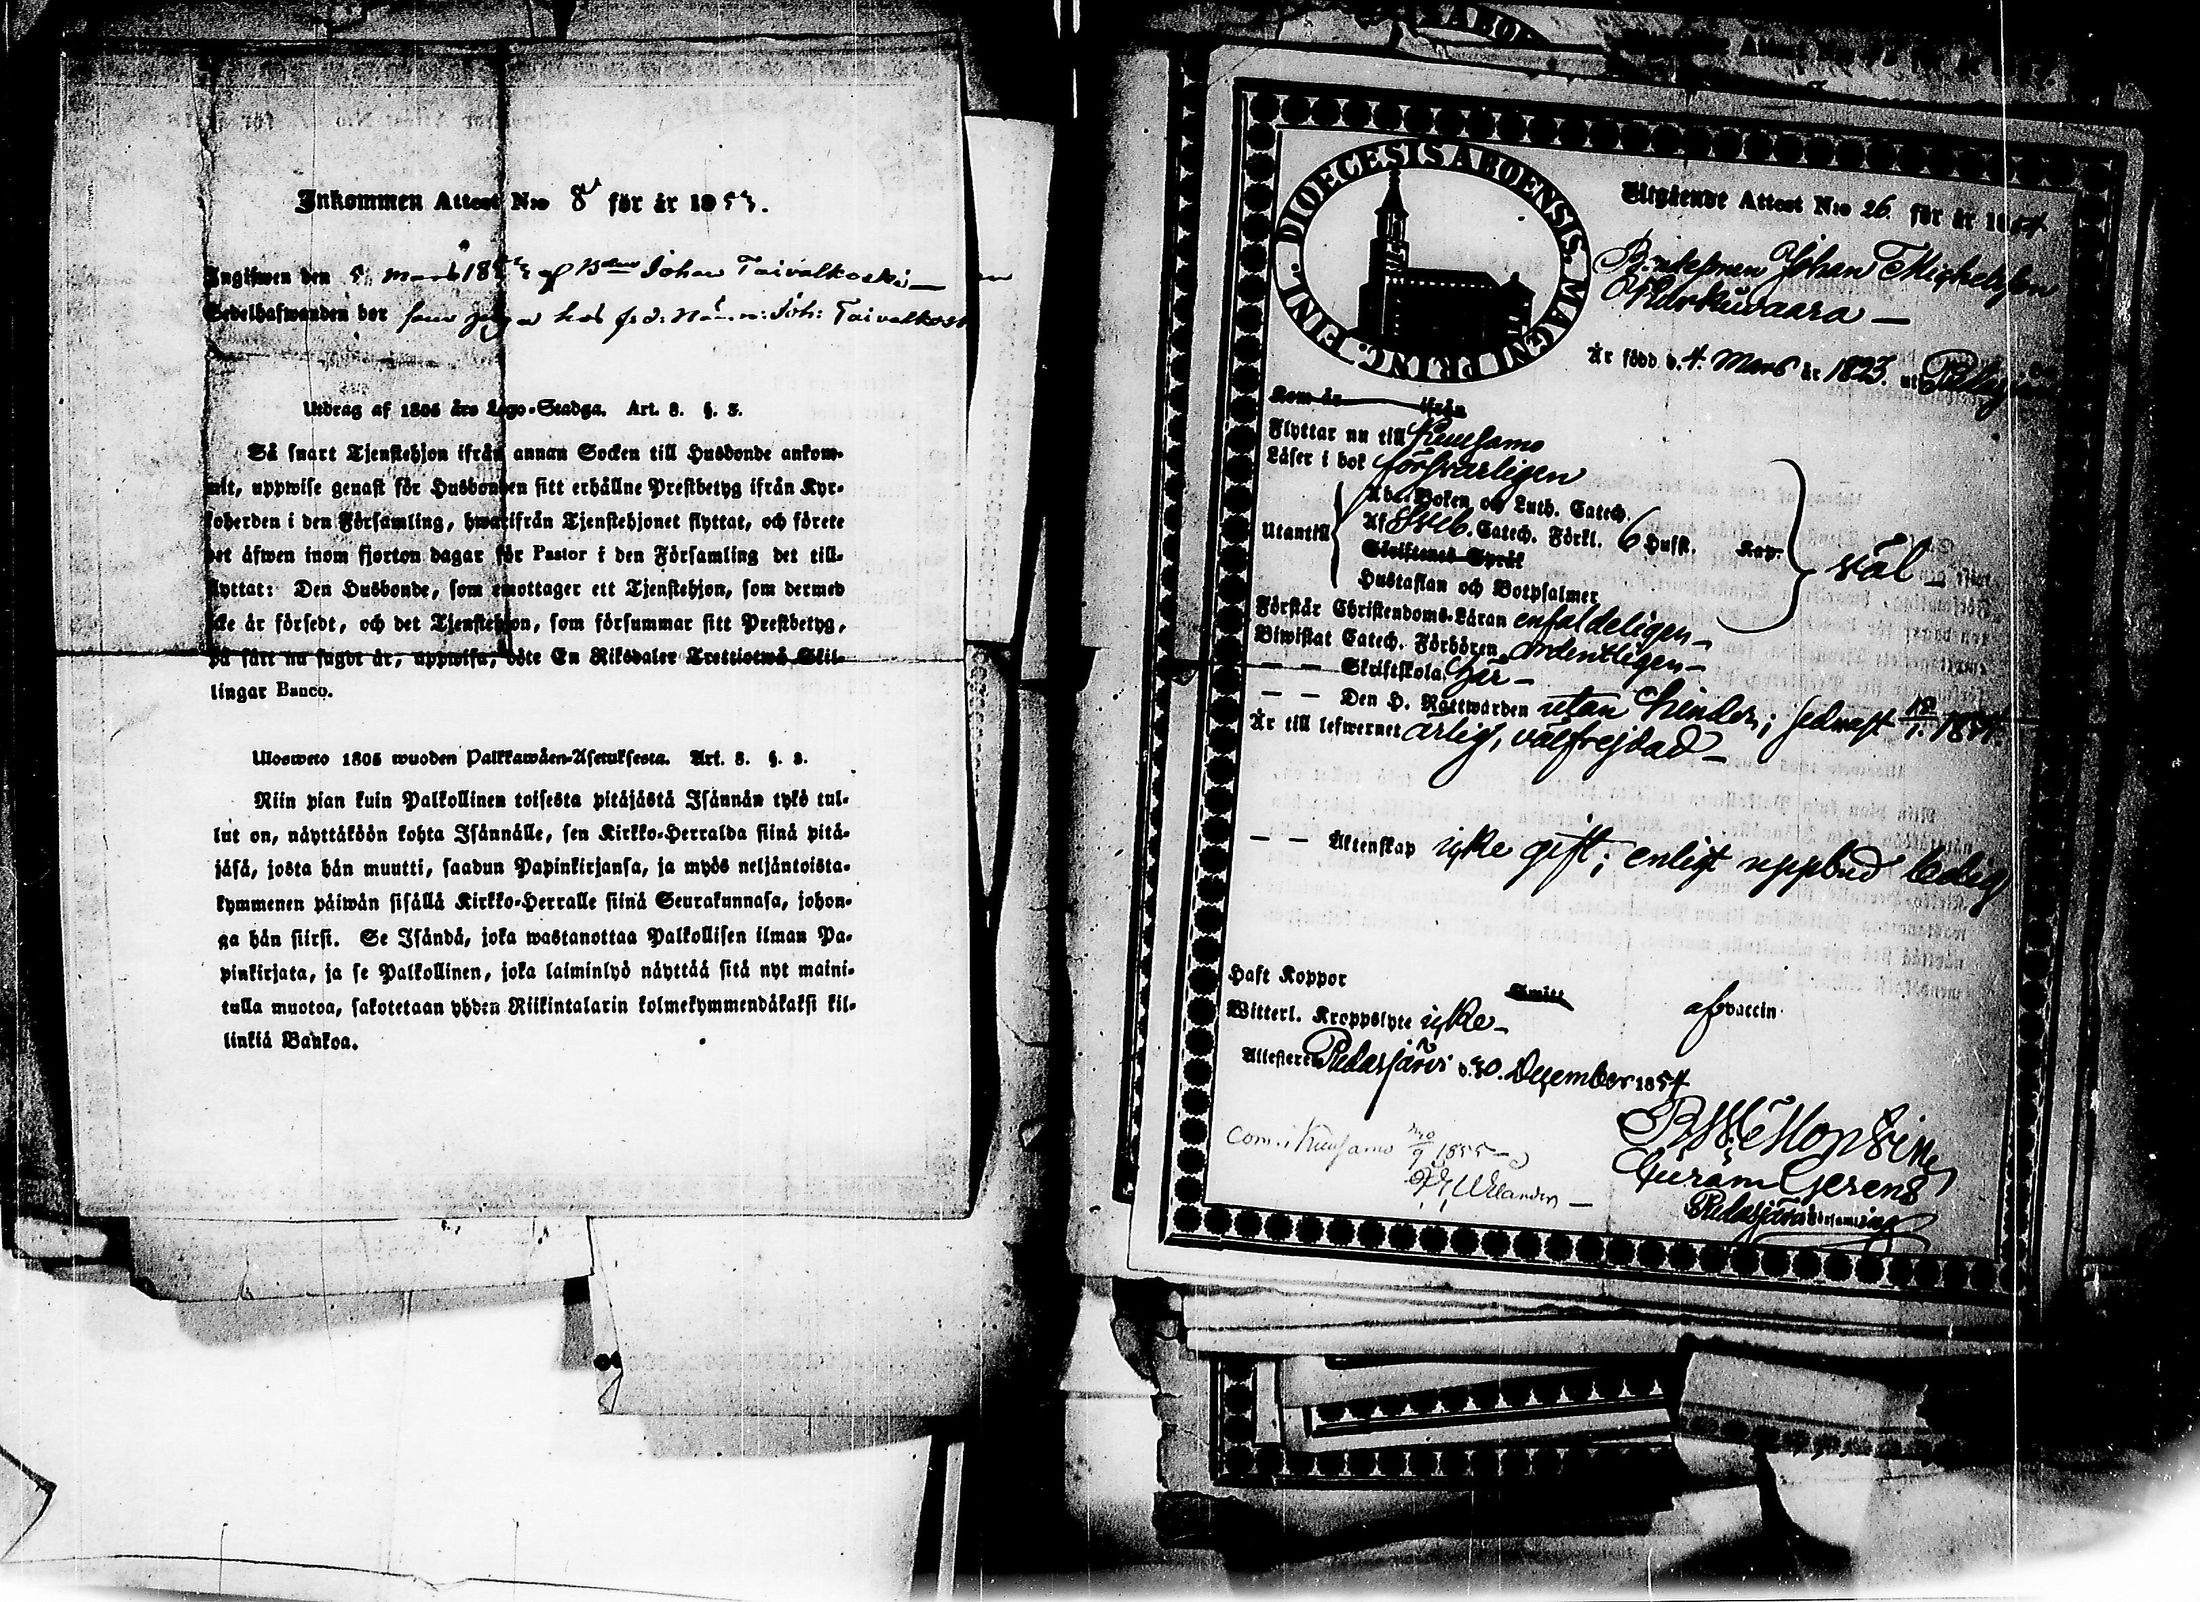 Inkommen Attest N:o 8 för år 1853.
Ingifwen den 5 mars 1853 af Johan Taivalkoski
Sedelhafwanden bor hos Joh: Taivalkoski
Utdrag af 1805 års Lego-Stadga. Art. 8. §. 3.
Så snart Tjenstehjon ifrån annan Socken till Husbonde ankom-
mit, uppwise genast för Husbonden sitt erhållne Prestbetyg ifrån Kyr-
koherden i den Församling, hwarifrån Tjenstehjonet flyttat, och förete
det äfwen inom fjorton dagar för Pastor i den Församling det till-
flyttat: Den Husbonde, som emottager ett Tjenstehjon, som dermed
icke är försedt, och det Tjenstehjon, som försummar sitt Prestbetyg,
på sätt nu sagdt är, uppwisa, böte En Riksdaler Trettiotwå Skil-
lingar Banco.
Ulosweto 1805 wuoden Palkkawäen-Asetuksesta. Art. 8. §. 3.
Niin pian kuin Palkollinen toisesta pitäjästä Isännän tykö tul-
lut on, näyttäköön kohta Isännälle, sen Kirkko-Herralda siinä pitä-
jäsä, josta hän muutti, saadun Papinkirjansa, ja myös neljäntoista-
kymmenen päiwän sisällä Kirkko-Herralle siinä Seurakunnasa, johon-
ga hän siirsi. Se Isändä, joka wastanottaa Palkollisen ilman Pa-
pinkirjata, ja se Palkollinen, joka laiminlyö näyttää sitä nyt maini-
tulla muotoa, sakotetaan yhden Riikintalarin kolmekymmendäkaksi kil-
linkiä Bankoa.
DIOECESIS ABOENSIS. MAGNI PRINC. FINL.
Utgående Attest N:o 26. för år 1854
Johan Michelsson
Kurkuvaara
Är född d. 4. Mars år 1823. uti Pudasjärvi
Kom år ifrån
Flyttar nu till Kuusamo
Läser i bok försvarligen
Utantill
Abc-Boken och Luth. Catech.
Af Sveb. Catech. Förkl. 6 Hufst. Kap.
Skriftenes Språk
Hustaflan och Botpsalmer
väl
Förstår Christendoms-Läran enfaldeligen
Biwistat Catech. Förhören ordentligen
— — Skriftskola här
— — Den H. Nattwarden utan hinder; sednast 1854.
Är till lefwernet ärlig, välfrejdad
— — Äktenskap icke gift; enligt uppbud ledig
Haft Koppor
Smitt
af vaccin
Witterl. Kroppslyte icke
Attesterar Pudasjärvi d. 30. December 1854
Pudasjärvi församling
Kuusamo 1855